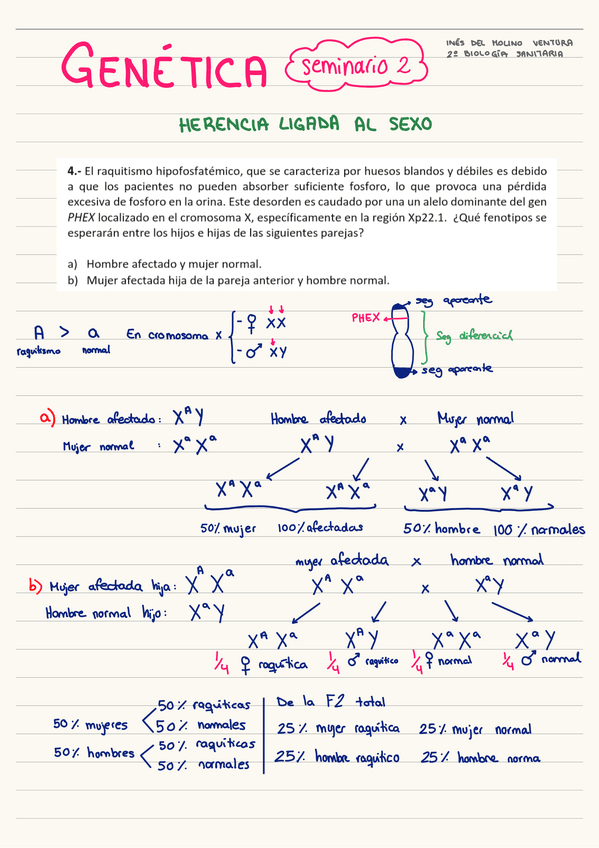 GENÉTICA seminario 2
INÉS DEL MOLINO VENTURA
2º BIOLOGÍA SANITARIA
HERENCIA LIGADA AL SEXO
4.- El raquitismo hipofosfatémico, que se caracteriza por huesos blandos y débiles es debido
a que los pacientes no pueden absorber suficiente fosforo, lo que provoca una pérdida
excesiva de fosforo en la orina. Este desorden es caudado por una un alelo dominante del gen
PHEX localizado en el cromosoma X, específicamente en la región Xp22.1. ¿Qué fenotipos se
esperarán entre los hijos e hijas de las siguientes parejas?
a) Hombre afectado y mujer normal.
b) Mujer afectada hija de la pareja anterior y hombre normal.
A > a En cromosoma X
raquitismo normal
- ♀ XX
- ♂ XY
PHEX
seg apareante
Seg diferencial
seg apareante
a) Hombre afectado: XᴬY Hombre afectado x Mujer normal
Mujer normal : XᵃXᵃ XᴬY x XᵃXᵃ
XᴬXᵃ XᴬXᵃ XᵃY XᵃY
50% mujer 100% afectadas 50% hombre 100% normales
mujer afectada x hombre normal
b) Mujer afectada hija: XᴬXᵃ XᴬXᵃ x XᵃY
Hombre normal hijo: XᵃY
XᴬXᵃ XᴬY XᵃXᵃ XᵃY
1/4 ♀ raquítica 1/4 ♂ raquítico 1/4 ♀ normal 1/4 ♂ normal
50% mujeres 50% raquíticas
50% normales
50% hombres 50% raquíticas
50% normales
De la F2 total
25% mujer raquítica 25% mujer normal
25% hombre raquítico 25% hombre norma